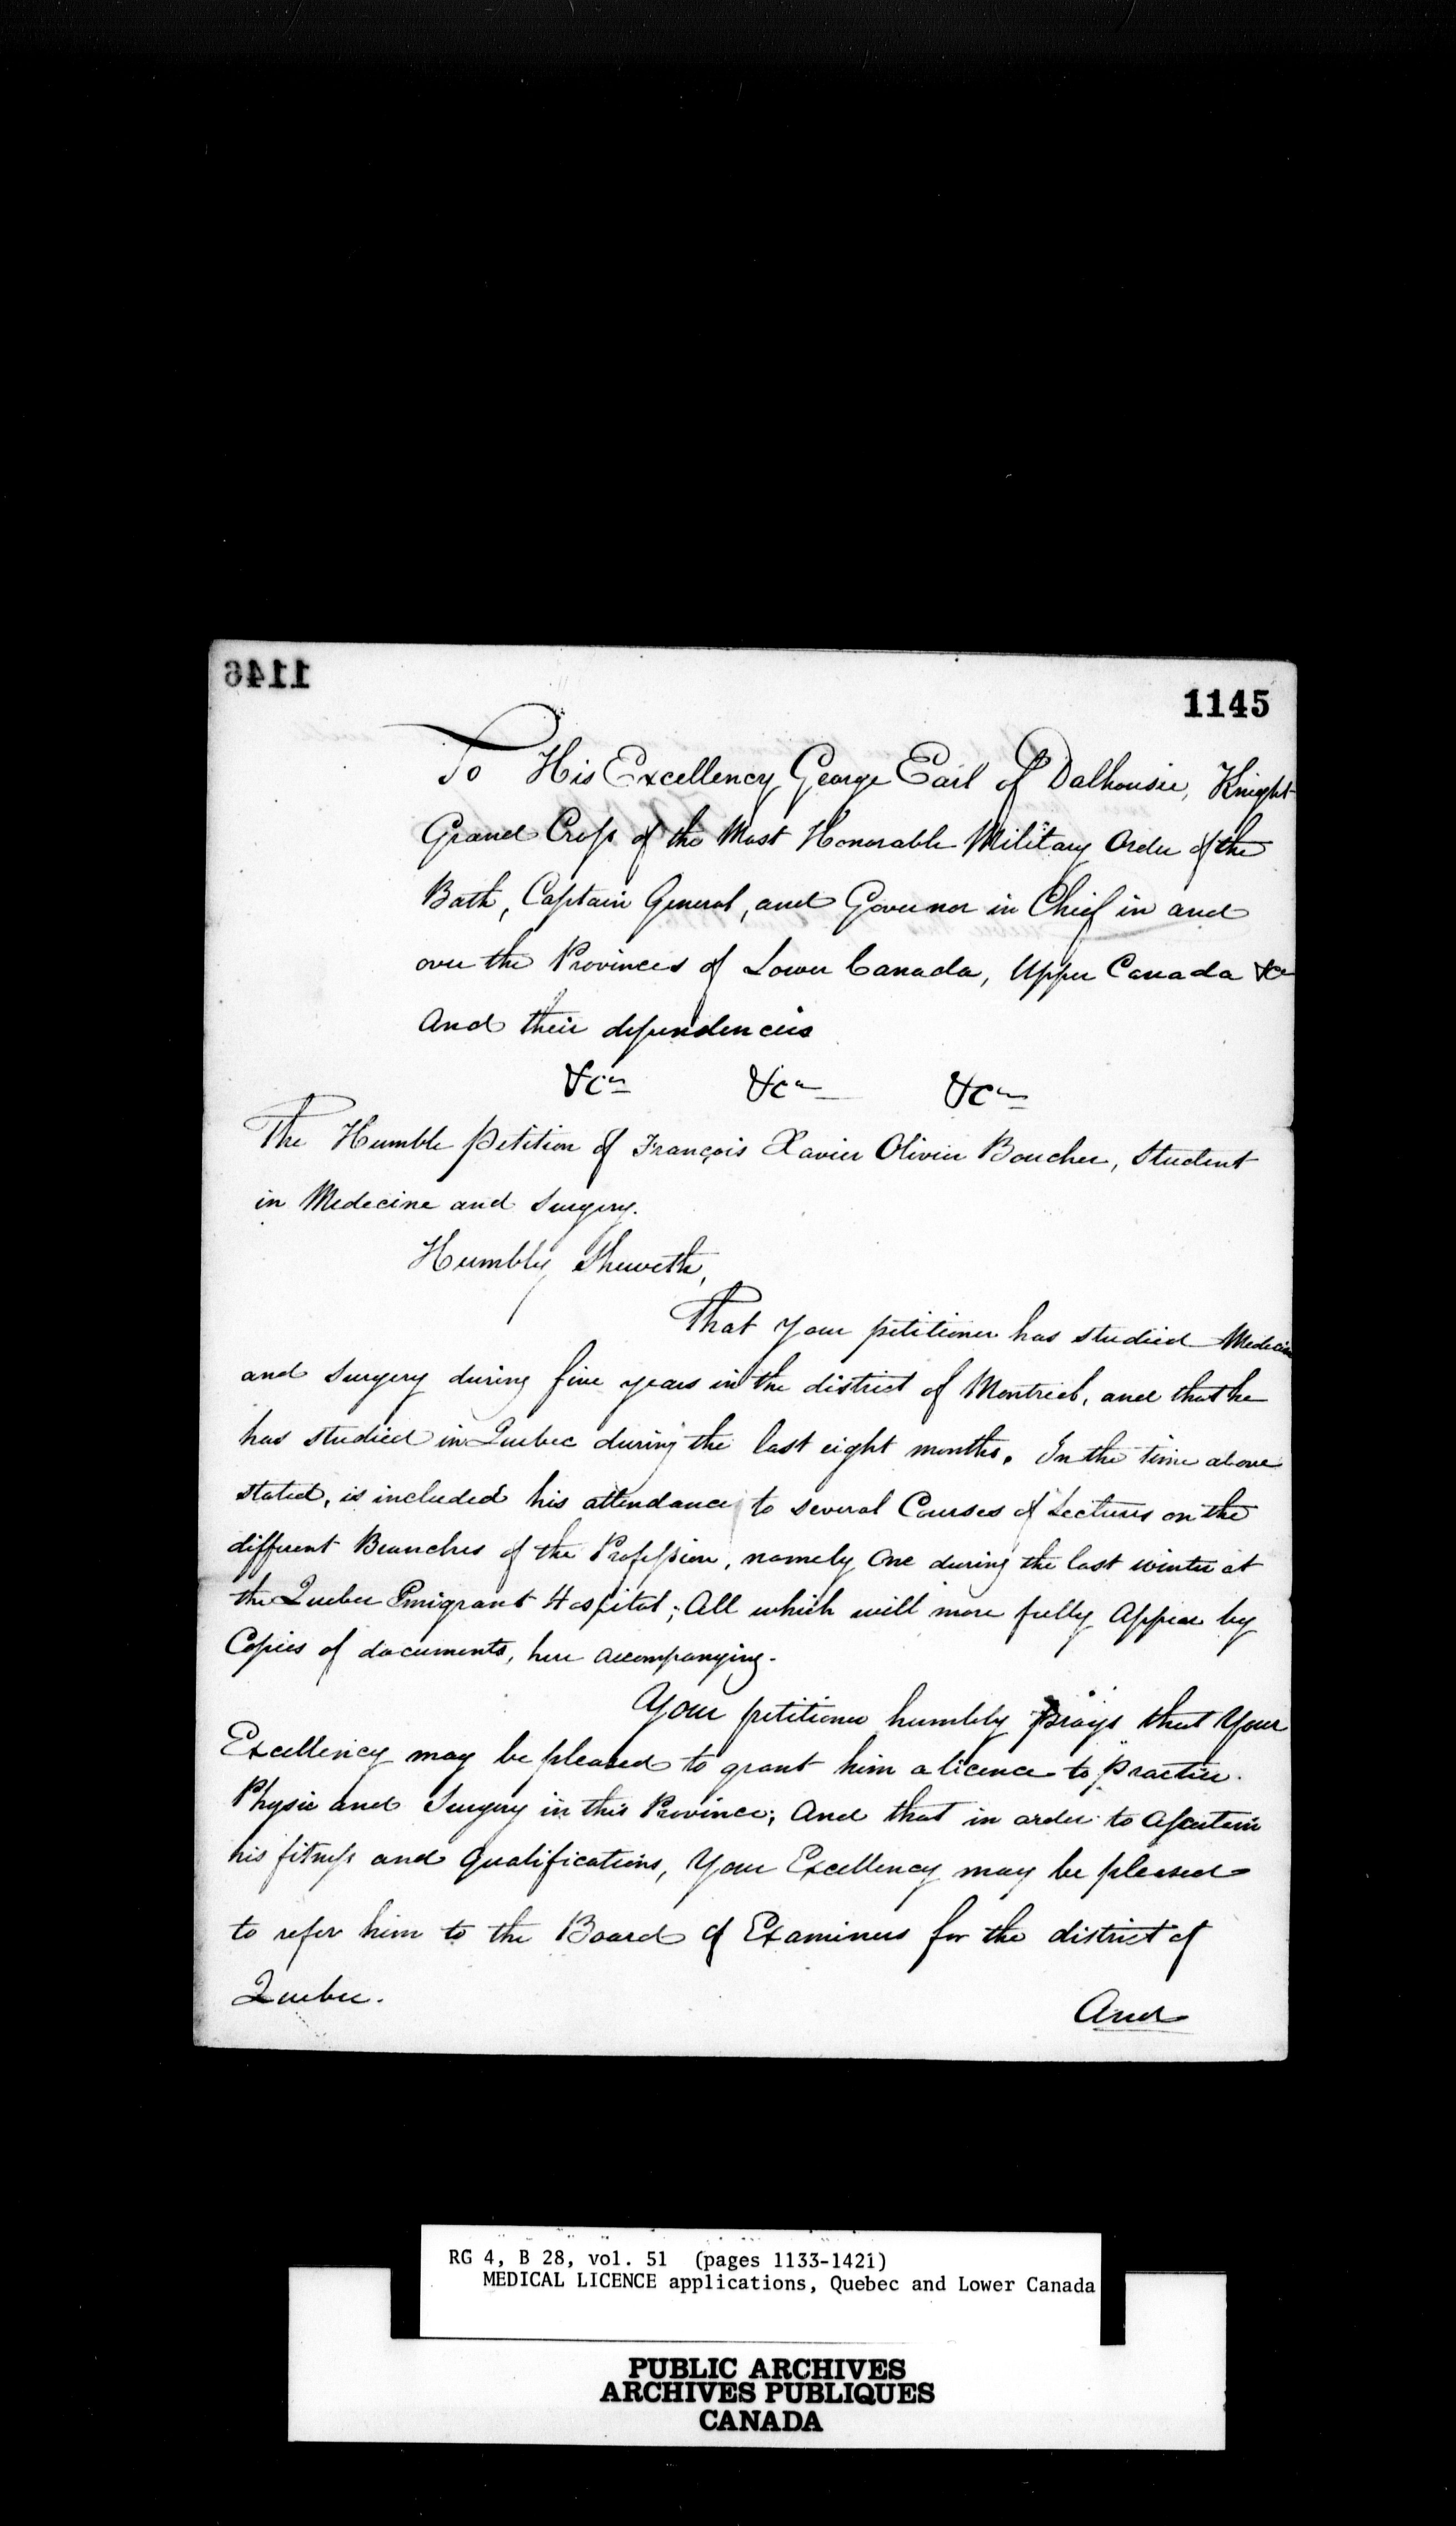 1146
1145
To His Excellency George Earl of Dalhousie, Knight
Grand Cross of the Most Honorable Military Order of the
Bath, Captain General, and Governor in Chief in and
over the Provinces of Lower Canada, Upper Canada &ca
And their dependencies
&ca &ca &ca
The Humble Petition of François Xavier Olivier Boucher, Student
in Medecine and Surgery.
Humbly Sheweth,
That your petitioner has studied Medecine
and Surgery during five years in the district of Montreal, and that he
has studied in Quebec during the last eight months. In the time above
stated, is included his attendance to several Courses of Lectures on the
different Branches of the Profession, namely One during the last winter at
the Quebec Emigrant Hospital; All which will more fully Appear by
Copies of documents, here accompanying.
Your petitioner humbly prays that Your
Excellency may be pleased to grant him a licence to practice
Physic and Surgery in this Province; And that in order to Ascertain
his fitness and qualifications, Your Excellency may be pleased
to refer him to the Board of Examiners for the district of
Quebec.
And
RG 4, B 28, vol. 51 (pages 1133-1421)
MEDICAL LICENCE applications, Quebec and Lower Canada
PUBLIC ARCHIVES
ARCHIVES PUBLIQUES
CANADA